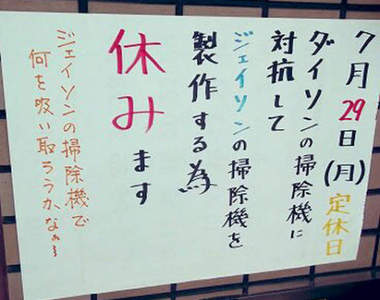 7月29日(月)定休日
ダイソンの掃除機に
対抗して
ジェイソンの掃除機を
製作する為
休みます
ジェイソンの掃除機で
何を吸い取ろうかなぁ〜